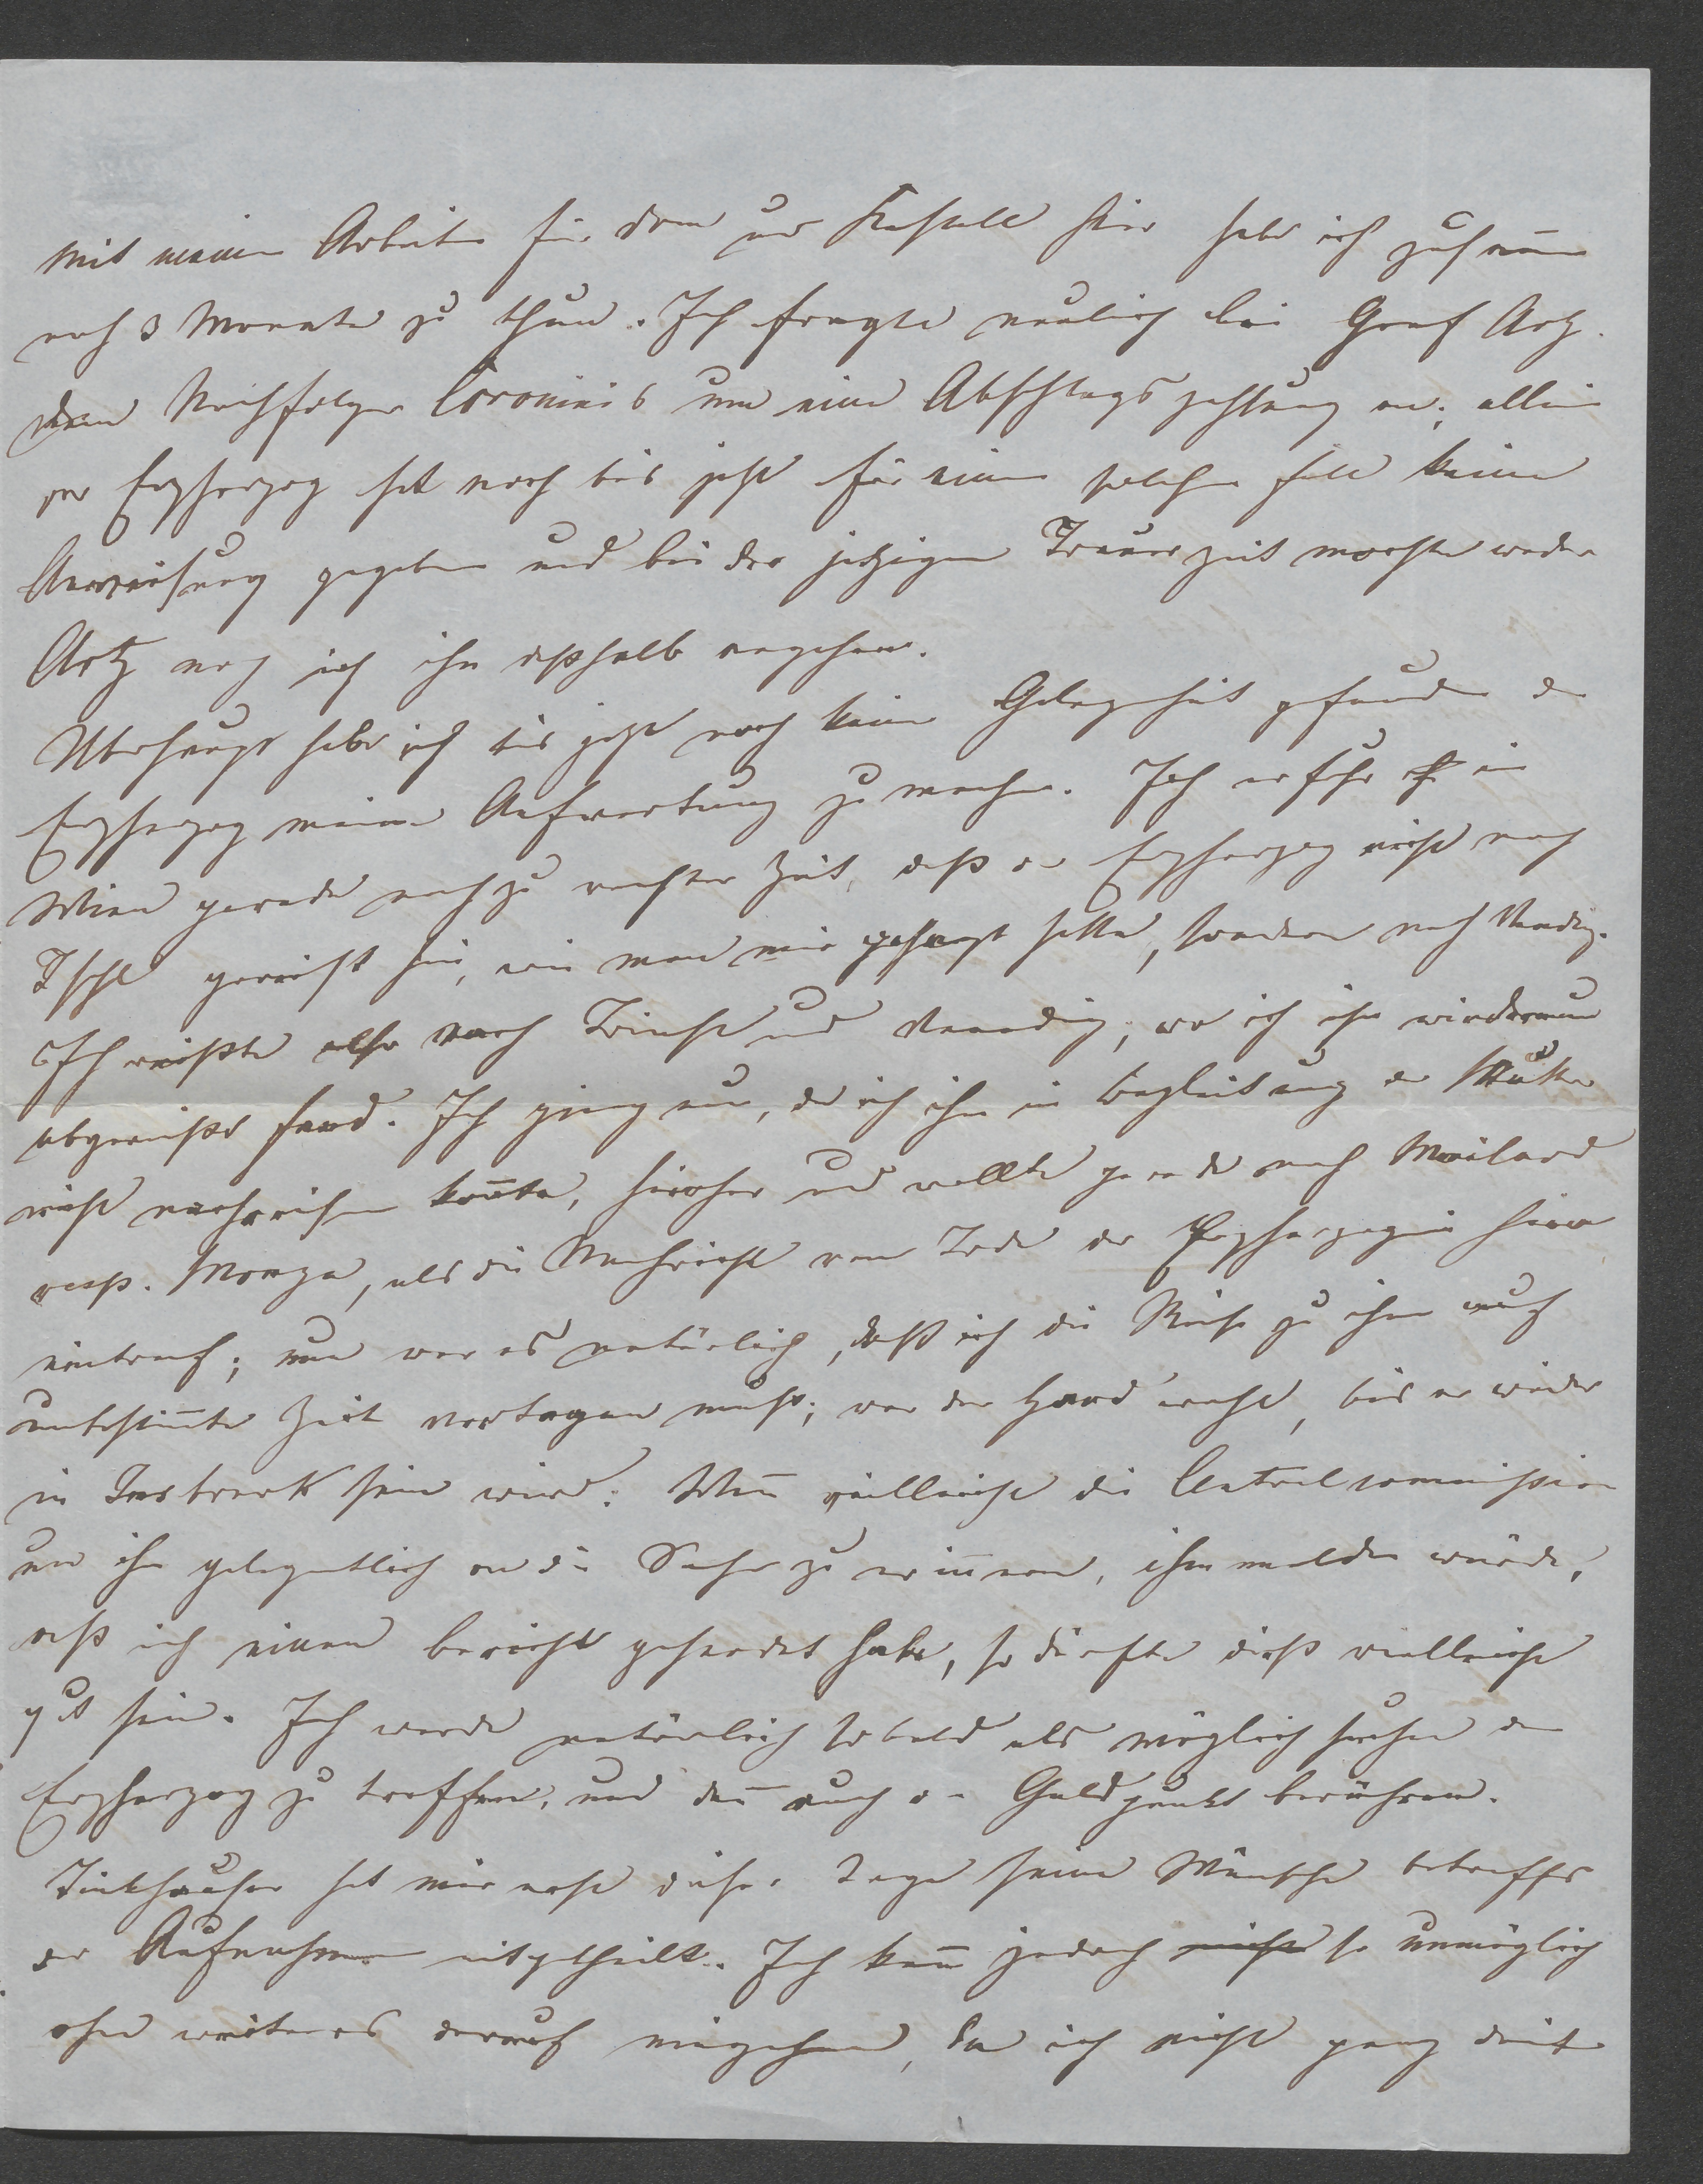 Mit meinen Arbeiten für Dom und Kastell hier habe ich zusam̅en
noch 3 Monate zu thun. Ich fragte neulich bei Graf Arz.
dem Nachfolger Coroninis um eine Abschlagszahlung an; allein
der Erzherzog hat noch bis jetzt für einen solchen Fall keine
Anweisung gegeben und bei der jetzigen Trauerzeit mochte weder
Artz noch ich ihn deßhalb angehen.
Überhaupt habe ich bis jetzt noch keine Gelegenheit gefunden dem
Erzherzog meine Aufwartung zu machen. Ich erfuhr in
Wien gerade noch zu rechter Zeit, daß der Erzherzog nicht nach
Ischl gereist sei, wie man mir gesagt hatte, sondern nach Venedig.
Ich reißte also nach Triest und Venedig, wo ich ihn wiederum
abgereißt fand. Ich ging nun, da ich ihm in Begleitung der Mutter
nicht nachreisen kon̅te, hierher und wollte gerade nach Mailand
resp. Monza, als die Nachricht vom Tode der Erzherzogin hier
eintraf; nun war es natürlich, daß ich die Reise zu ihm auf
unbestim̅te Zeit vertagen muß; vor der Hand wohl, bis er wieder
in Insbruck sein wird. Wen̅ vielleicht die Centralcommission
um ihn gelegentlich an die Sache zu erin̅ern, ihm melden würde,
daß ich einen Bericht gesendet habe, so dürfte dieß vielleicht
gut sein. Ich werde natürlich sobald als möglich suchen den
Erzherzog zu treffen, und dan̅ auch den Geldpunkt berühren.
Tinkhauser hat mir erst dieser Tage seine Wünsche betreffs
der Aufnahmen mitgetheilt. Ich kan̅ jedoch nicht so unmöglich
ohne weiteres darauf eingehen, da ich nicht ganz damit